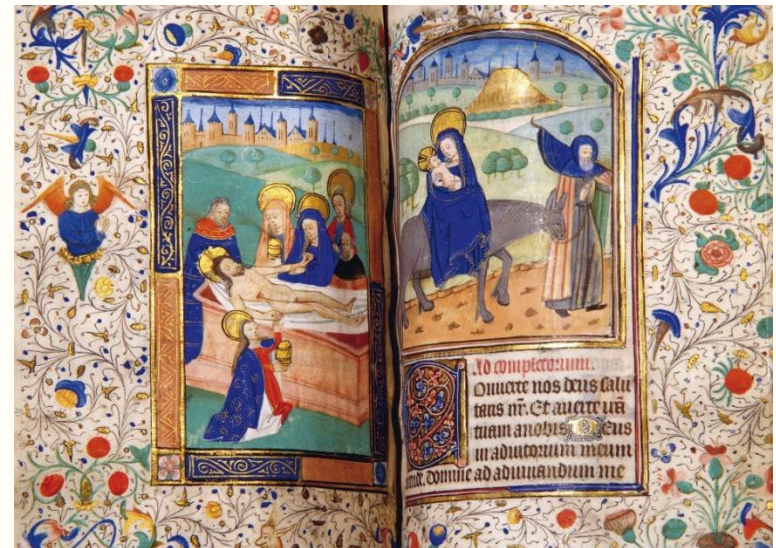 Ad completorium.
Onuerte nos deus salu
taris nr̄. Et auerte irā
tuam a nobis. Deus
in adiutorium meum
Domine ad adiuuandum me